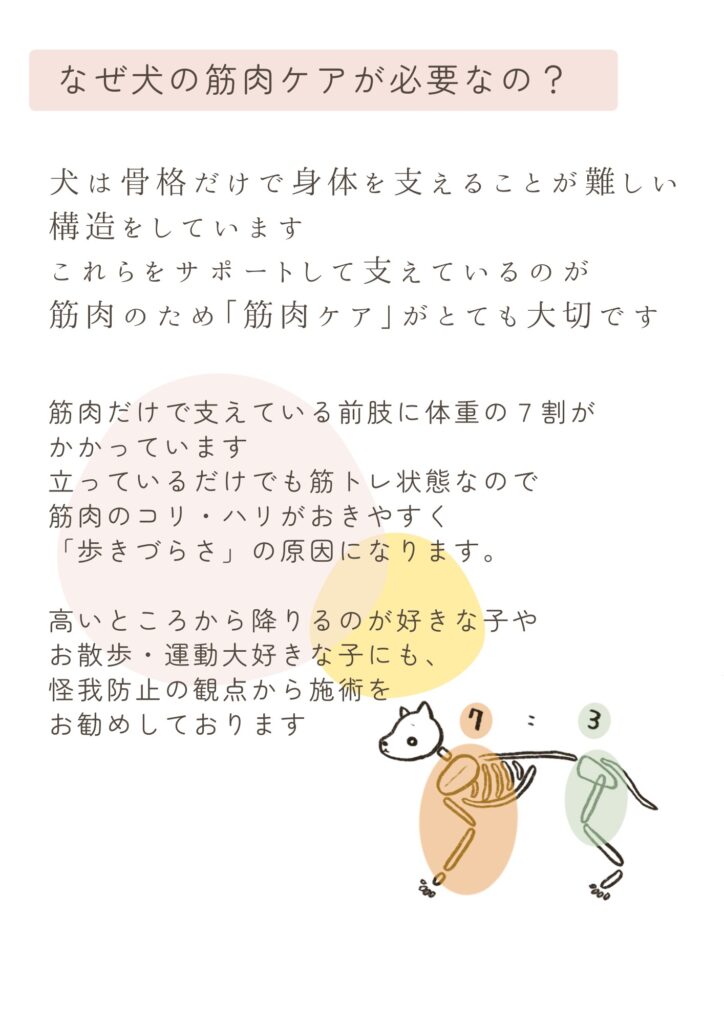 なぜ犬の筋肉ケアが必要なの？
犬は骨格だけで身体を支えることが難しい
構造をしています
これらをサポートして支えているのが
筋肉のため「筋肉ケア」がとても大切です
筋肉だけで支えている前肢に体重の７割が
かかっています
立っているだけでも筋トレ状態なので
筋肉のコリ・ハリがおきやすく
「歩きづらさ」の原因になります。
高いところから降りるのが好きな子や
お散歩・運動大好きな子にも、
怪我防止の観点から施術を
お勧めしております
7 : 3